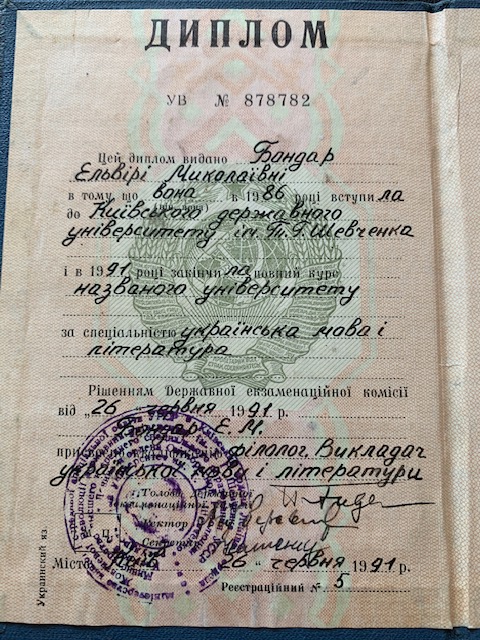 ДИПЛОМ
УВ № 878782
Цей диплом видано Бондар
Ельвірі Миколаївні
в тому, що вона в 1986 році вступила
до Київського державного
університету ім. Т. Г. Шевченка
і в 1991 році закінчила повний курс
названого університету
за спеціальністю українська мова і
література
Рішенням Державної екзаменаційної комісії
від „26“ червня 1991 р.
Бондар Е. М.
присвоєно кваліфікацію філолог. Викладач
української мови і літератури
Голова Державної
екзаменаційної комісії
Ректор
Секретар
Місто Київ 26 „ червня 1991 р.
Реєстраційний № 5
Украинский яз.